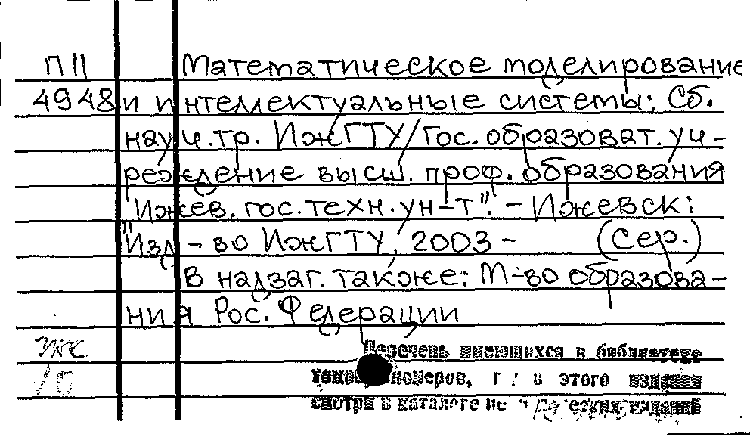 П11 Математическое моделирование
4948 и интеллектуальные системы: Сб.
науч.тр. ИжГТУ/Гос. образоват. уч-
реждение высш. проф. образования
"Ижев. гос. техн. ун-т". - Ижевск:
Изд-во ИжГТУ, 2003 - (Сер.)
В надзаг. также: М-во образова-
ния Рос. Федерации
Перечень имеющихся в библиотеке
томов, номеров, этого издания
смотри в каталоге изданий